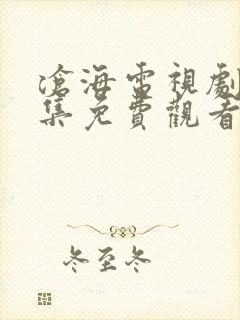 滄海電視劇
集免費觀看
冬至冬